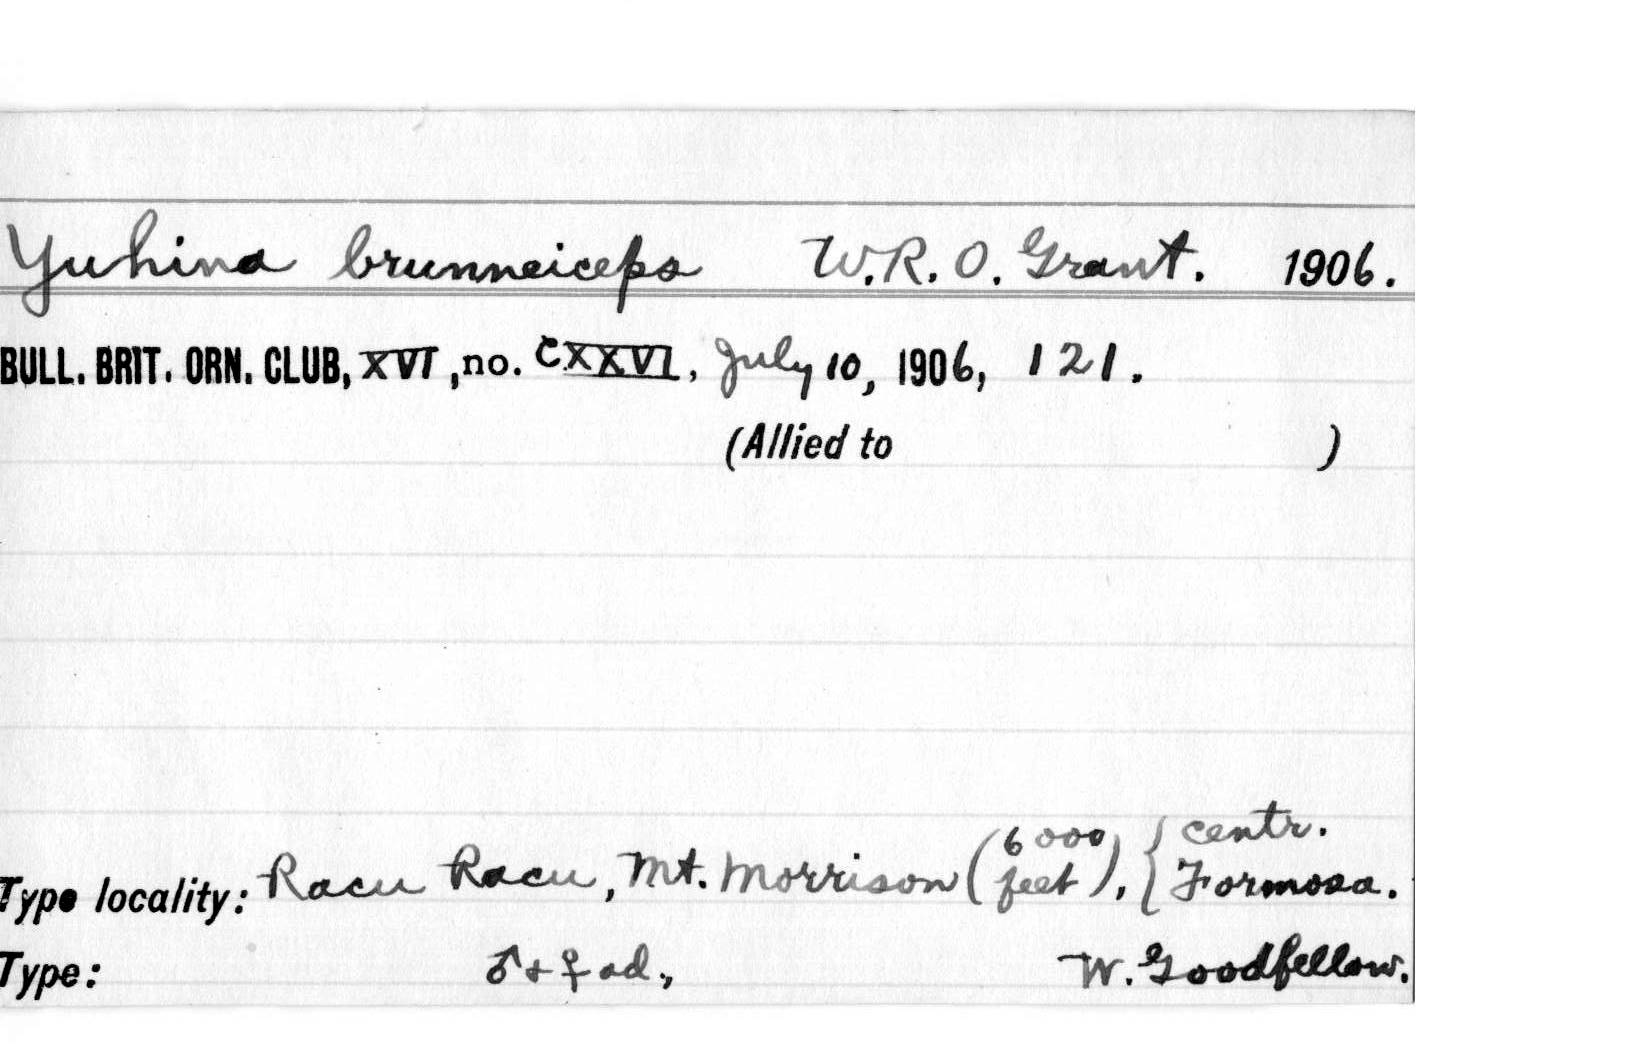 Yuhina brunneiceps W.R.O. Grant. 1906.
BULL. BRIT. ORN. CLUB, XVI, no. CXXVI, July 10, 1906, 121.
(Allied to )
Type locality: Racu Racu, Mt. Morrison (6000 feet), { centr. Formosa.
Type: ♂ + ♀ ad., W. Goodfellow.